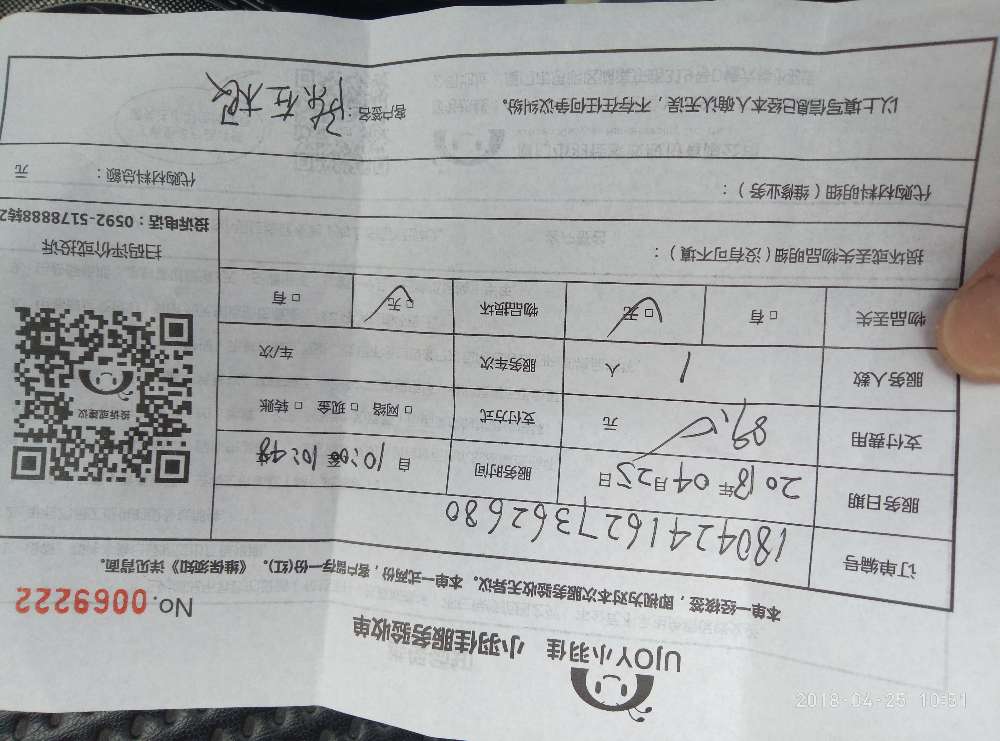 UJOY小羽佳 小羽佳服务验收单
No. 0069222
本单一经核签，即视为对本次服务验收无异议。本单一式两份，客户留存一份(红)。《维保须知》详见背面。
订单编号 180424162736 2680
服务日期 2018年04月25日 服务时间 自10:00至10:48
支付费用 元 支付方式 □网络 □现金 □转账
服务人数 1 人 服务车次 车/次
物品丢失 □有 □无 物品损坏 □无 □有
损坏或丢失物品明细(没有可不填)：
投诉或建议
扫码评价或投诉
投诉电话：0592-5178888转2
代购材料明细（维修业务）： 代购材料总额： 元
以上填写信息已经本人确认无误，不存在任何争议纠纷。 客户签名：
2018-04-25 10:51